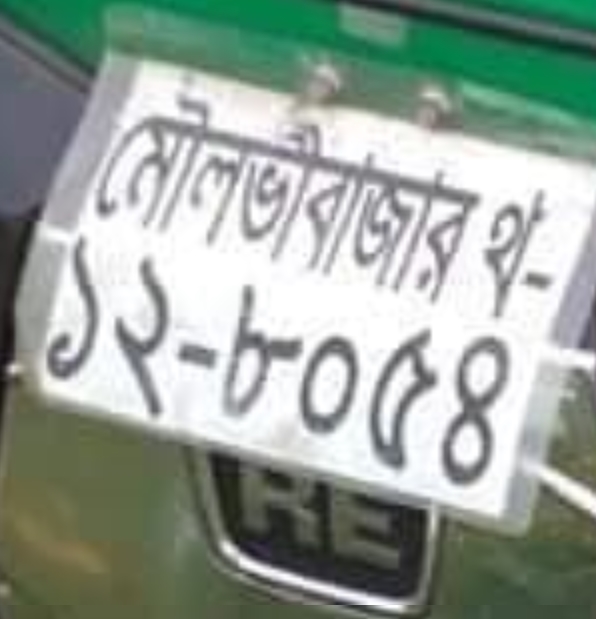 মৌলভীবাজার থ-
১২-৮০৫৪
RE